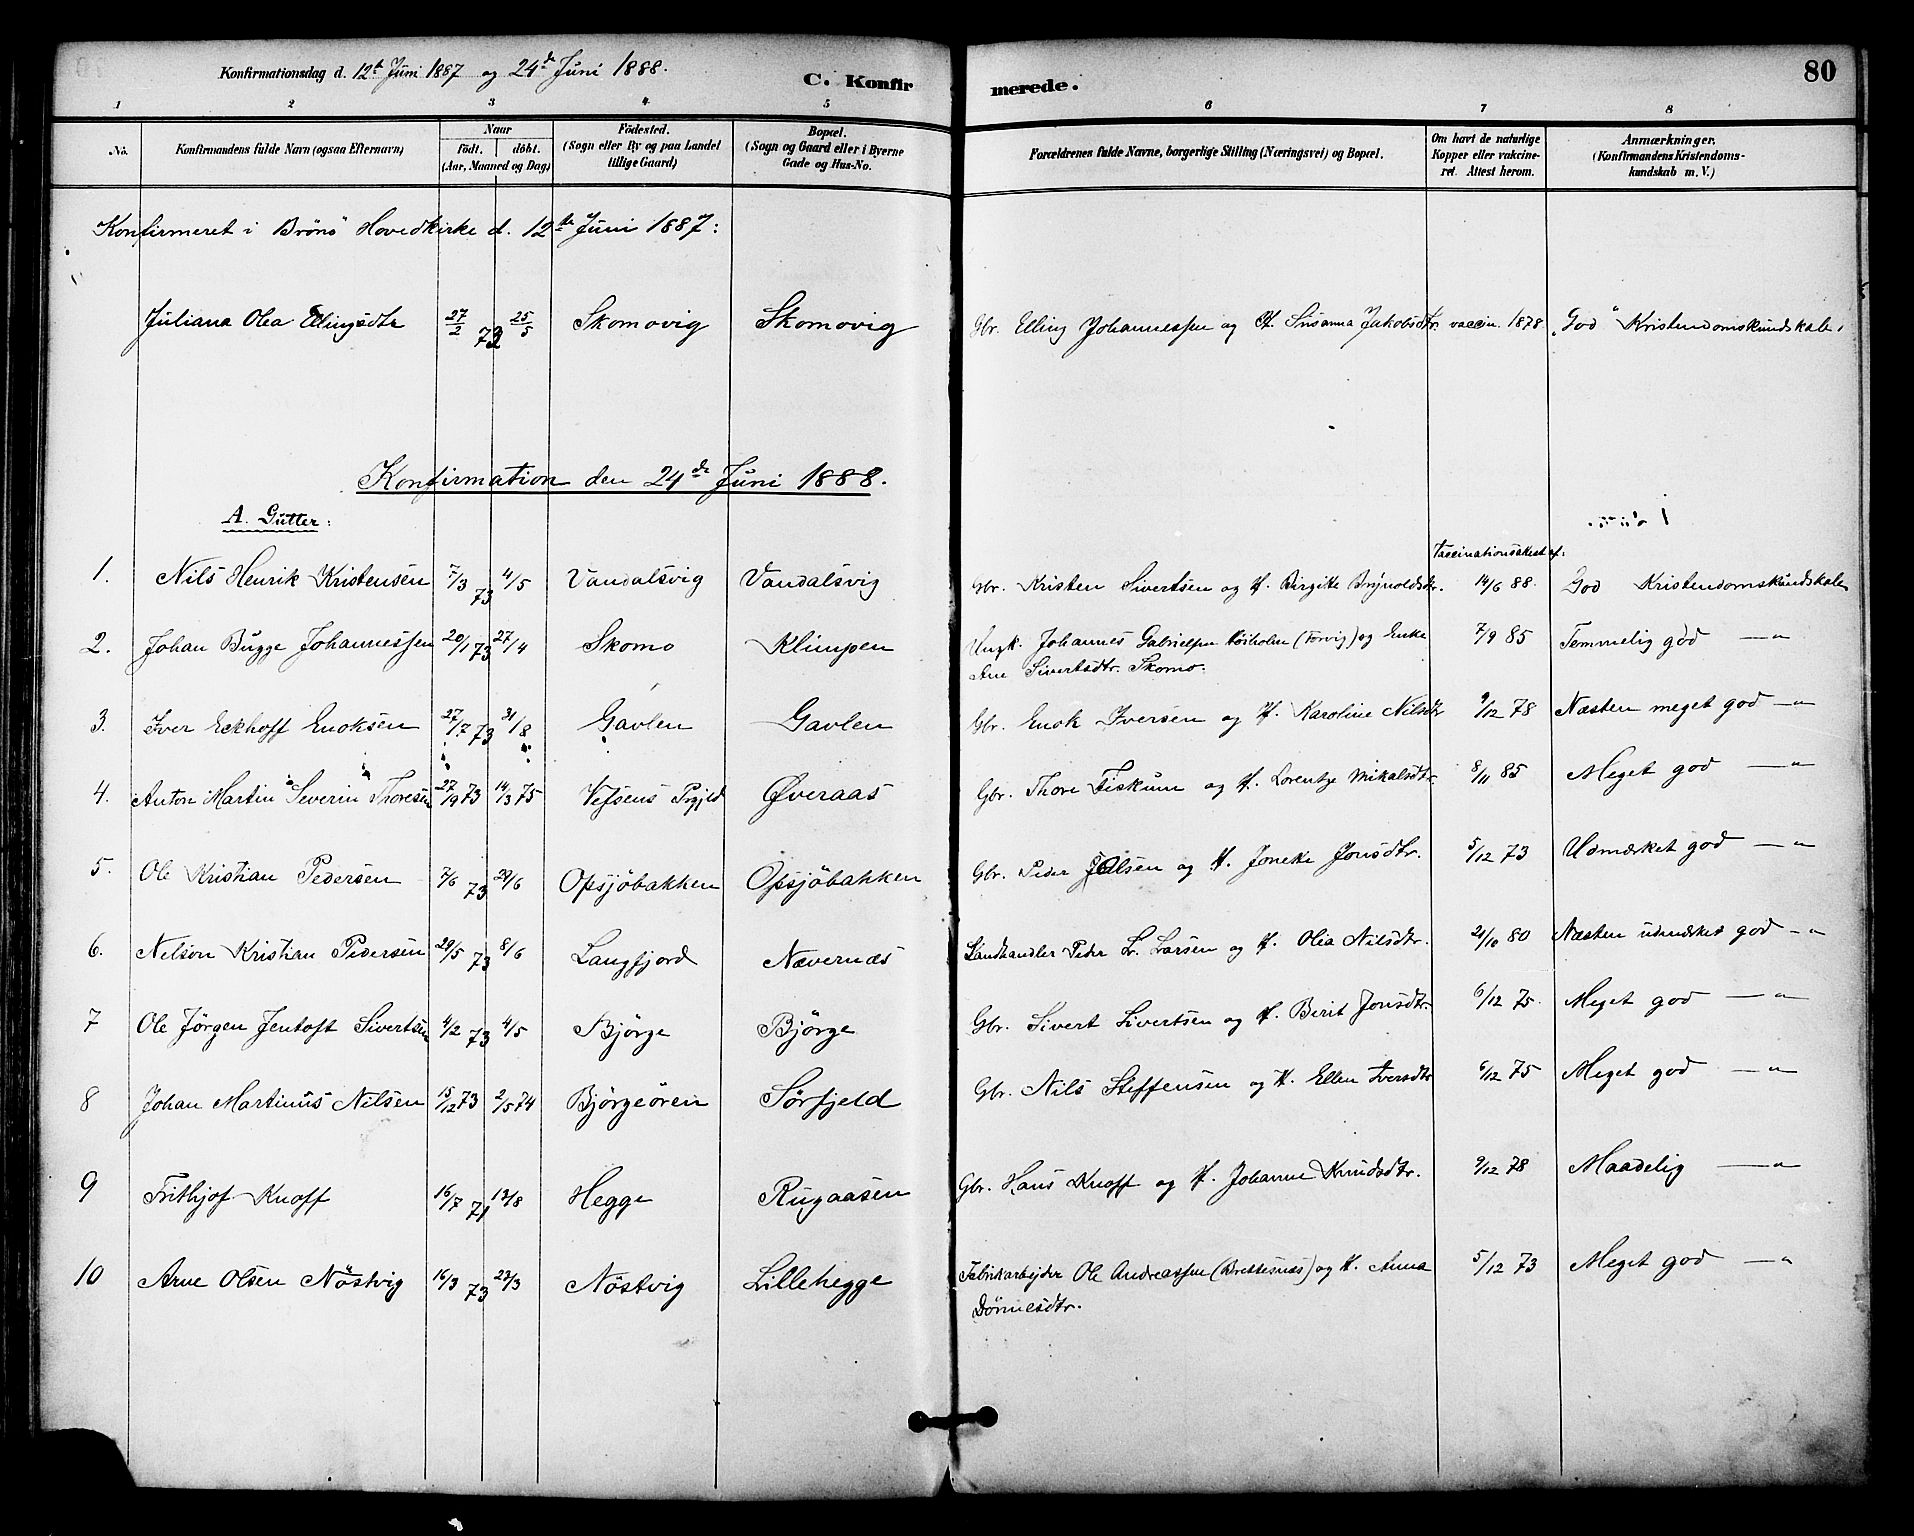 Konfirmationsdag d. 12te Juni 1887 og 24de Juni 1888.
C. Konfirmerede.
80
1 2 3 4 5 6 7 8
No.
Konfirmandens fulde Navn (ogsaa Efternavn)
Naar
födt. döbt.
(Aar, Maaned og Dag)
Födested.
(Sogn eller By og paa Landet
tillige Gaard)
Bopæl.
(Sogn og Gaard eller i Byerne
Gade og Hus-No.
Forældrenes fulde Navne, borgerlige Stilling (Næringsvei) og Bopæl.
Om havt de naturlige
Kopper eller vakcine-
ret. Attest herom.
Anmærkninger.
(Konfirmandens Kristendoms-
kundskab m. V.)
Konfirmeret i Brönö Hovedkirke d. 12te Juni 1887:
Juliana Olea Ellingsdtr 27/2 72 25/5 Skomovig Skomovig Gbr. Elling Johannessen og H. Susanna Jakobsdtr. vaccin. 1878 "God" Kristendomskundskab.
Konfirmation den 24de Juni 1888.
A. Gutter:
Vaccinationsattest af:
1. Nils Henrik Kristensen 7/3 73 4/5 Vandalsvig Vandalsvig Gbr. Kristen Sivertsen og H. Birgitte Brynoldsdtr. 14/6 88. God Kristendomskundskab
2. Johan Bugge Johannessen 20/1 73 27/4 Skomo Klimpen Ungk. Johannes Gabrielsen (Torvig) og Enke 7/9 85 Temmelig god —"
Ane Sivertsdtr. Skomo.
3. Iver Eckhoff Enoksen 27/7 73 31/8 Gavlen Gavlen Gbr. Enok Iversen og H. Karoline Nilsdtr 9/12 78 Næsten meget god —"
4. Anton Martin Severin Thoresen 27/9 73 14/3 75 Vefsens Prgjld Øveraas Gbr. Thore Fiskum og H. Lorentze Mikalsdtr. 8/11 85 Meget god —"
5. Ole Kristian Pedersen 7/6 73 29/6 Opsjöbakken Opsjöbakken Gbr. Peder Olsen og H. Joneke Jonsdtr. 5/12 73 Udmærket god —"
6. Nelson Kristian Pedersen 29/5 73 8/6 Langfjord Nævernæs Landhandler Peder L. Larsen og H. Olia Nilsdtr. 21/10 80 Næsten udmærket god —"
7 Ole Jörgen Jentoft Sivertsen 4/2 73 4/5 Bjørge Bjørge Gbr. Sivert Sivertsen og H. Berit Jonsdtr. 6/12 75. Meget god —"
8 Johan Martinus Nilsen 15/12 73 2/5 74 Björgeören Sörfjeld Gbr. Nils Steffensen og H. Ellen Iversdtr 6/12 75 Meget god —"
9 Frithjof Knoff 16/7 71 13/8 Hegge Rugaasen Gbr. Hans Knoff og H. Johanne Knudsdtr. 9/12 78 Maadelig —"
10 Arne Olsen Nöstvig 16/3 73 23/3 Nöstvig Lillehegge Fabrikarbejder Ole Andreassen (Brettesnæs) og H. Anna 5/12 73 Meget god —"
Dönnesdtr.